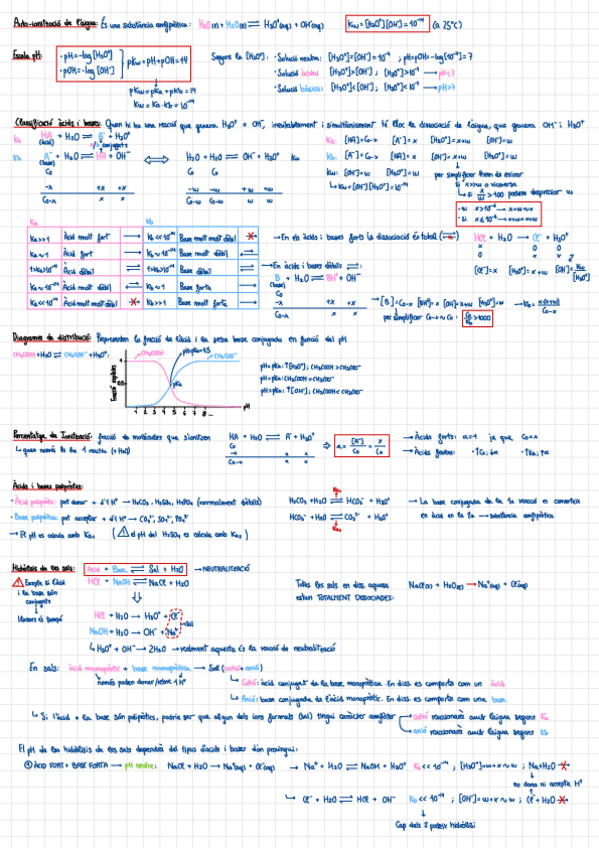 Auto-ionització de l'aigua: És una substància amfipròtica: H₂O(l) + H₂O(l) ⇌ H₃O⁺(aq) + OH⁻(aq) Kw = [H₃O⁺][OH⁻] = 10⁻¹⁴ (a 25°C)
Escala pH: · pH = -log[H₃O⁺]
· pOH = -log[OH⁻]
pKw = pH + pOH = 14
pKw = pKa + pKb = 14
Kw = Ka · Kb = 10⁻¹⁴
Segons la [H₃O⁺]: · Solució neutra: [H₃O⁺] = [OH⁻] = 10⁻⁷ ; pH = pOH = -log[10⁻⁷] = 7
· Solució àcida: [H₃O⁺] > [OH⁻] ; [H₃O⁺] > 10⁻⁷ → pH < 7
· Solució bàsica: [H₃O⁺] < [OH⁻] ; [H₃O⁺] < 10⁻⁷ → pH > 7
Classificació àcids i bases: Quan hi ha una reacció que genera H₃O⁺ o OH⁻, inevitablement i simultàniament té lloc la dissociació de l'aigua, que genera OH⁻ i H₃O⁺
Ka HA + H₂O ⇌ A⁻ + H₃O⁺
(àcid) conjugats
Kb A⁻ + H₂O ⇌ HA + OH⁻ ⟺ H₂O + H₂O ⇌ OH⁻ + H₃O⁺ Kw
(base)
Ka: [HA] = C₀-x [A⁻] = x [H₃O⁺] = x+w [OH⁻] = w
Kb: [A⁻] = C₀-x [HA] = x [OH⁻] = x+w [H₃O⁺] = w
Kw: [OH⁻] = w [H₃O⁺] = w
Kw = [OH⁻][H₃O⁺] = 10⁻¹⁴
per simplificar hem de mirar
si x >> w o viceversa
Ka Kb
Ka >> 1 Àcid molt fort → Kb << 10⁻¹⁴ Base molt molt dèbil
Ka ~ 1 Àcid fort → Kb ~ 10⁻¹⁴ Base molt dèbil
1 > Ka > 10⁻¹⁴ Àcid dèbil ⇌ 1 > Kb > 10⁻¹⁴ Base dèbil ⇌
Ka ~ 10⁻¹⁴ Àcid molt dèbil Kb ~ 1 Base forta →
Ka << 10⁻¹⁴ Àcid molt molt dèbil Kb >> 1 Base molt forta →
→ En els àcids i bases forts la dissociació és total HCl + H₂O → Cl⁻ + H₃O⁺
[Cl⁻] = x [H₃O⁺] = x+w
→ En àcids i bases dèbils ⇌:
B + H₂O ⇌ BH⁺ + OH⁻
(base)
→ [B] = C₀-x [BH⁺] = x [OH⁻] = x+w [H₃O⁺] = w
per simplificar C₀-x ~ C₀:
Diagrames de distribució: Representen la fracció de l'àcid i la seva base conjugada en funció del pH
CH₃COOH + H₂O ⇌ CH₃COO⁻ + H₃O⁺
CH₃COOH CH₃COO⁻
Fracció espècies
1
0,5
pKa
1 2 3 4 5 6 7 8 ... pH
Percentatge de Ionització: fracció de molècules que s'ionitzen HA + H₂O ⇌ A⁻ + H₃O⁺
→ Àcids forts: α = 1 ja que C₀ = x
Àcids i bases polipròtics:
· Àcid polipròtic: pot donar + d'1 H⁺ → H₂CO₃, H₂SO₄, H₃PO₄ (normalment dèbils)
· Base polipròtica: pot acceptar + d'1 H⁺ → CO₃²⁻, SO₄²⁻, PO₄³⁻
→ El pH es calcula amb Ka₁ (⚠ el pH del H₂SO₄ es calcula amb Ka₂)
H₂CO₃ + H₂O ⇌ HCO₃⁻ + H₃O⁺
HCO₃⁻ + H₂O ⇌ CO₃²⁻ + H₃O⁺
→ La base conjugada de la 1a reacció es converteix
en àcid en la 2a → substància amfipròtica
Hidròlisi de les sals: Àcid + Base ⇌ Sal + H₂O → NEUTRALITZACIÓ
HCl + NaOH ⇌ NaCl + H₂O
⚠ Excepte si l'àcid
i la base són
conjugats
HCl + H₂O → H₃O⁺ + Cl⁻
NaOH + H₂O → OH⁻ + Na⁺
→ sal
H₃O⁺ + OH⁻ → 2H₂O → realment aquesta és la reacció de neutralització
Totes les sals en diss. aquosa
estan TOTALMENT DISSOCIADES:
NaCl(s) + H₂O(l) → Na⁺(aq) + Cl⁻(aq)
En sals: àcid monopròtic + base monopròtica → Sal (catió + anió)
només poden donar/rebre 1 H⁺
Catió: àcid conjugat de la base monopròtica. En diss. es comporta com un àcid
Anió: base conjugada de l'àcid monopròtic. En diss. es comporta com una base
Si l'àcid o la base són polipròtics, podria ser que algun dels ions formats (sal) tingui caràcter amfòter
catió reaccionarà amb l'aigua segons Ka
anió reaccionarà amb l'aigua segons Kb
El pH de la hidròlisi de les sals dependrà del tipus d'àcids i bases d'on provingui:
① ÀCID FORT + BASE FORTA → pH neutre: NaCl + H₂O → Na⁺(aq) + Cl⁻(aq) → Na⁺ + H₂O ⇌ NaOH + H₃O⁺ Ka << 10⁻¹⁴ ; [H₃O⁺] = w+x ~ w ; Na⁺ + H₂O
no dona ni accepta H⁺
Cl⁻ + H₂O ⇌ HCl + OH⁻ Kb << 10⁻¹⁴ ; [OH⁻] = w+x ~ w ; Cl⁻ + H₂O
Cap dels 2 pateix hidròlisi